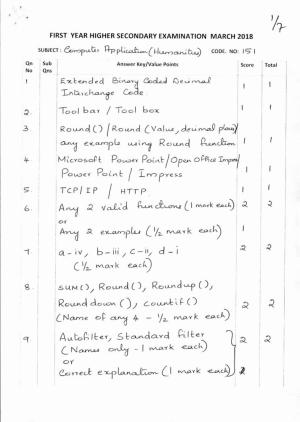 1/7
FIRST YEAR HIGHER SECONDARY EXAMINATION MARCH 2018
SUBJECT: Computer Application (Humanities) CODE. NO: 151
Qn No Sub Qns Answer Key/Value Points Score Total
1 Extended Binary Coded Decimal
Interchange Code. 1 1
2. Tool bar / Tool box 1 1
3. Round() / Round (Value, decimal place)
any example using Round function 1 1
4. Microsoft Power Point / Open Office Impress
Power Point / Impress 1 1
5. TCP/IP / HTTP 1 1
6. Any 2 valid functions (1 mark each) 2 2
or
Any 2 examples (1/2 mark each) 1
7. a-iv, b-iii, c-ii, d-i 2 2
(1/2 mark each)
8. SUM(), Round(), Roundup(),
Rounddown(), countif()
(Name of any 4 - 1/2 mark each) 2 2
9 Autofilter, Standard filter
(Names only - 1 mark each) 2 2
or
Correct explanation (1 mark each)